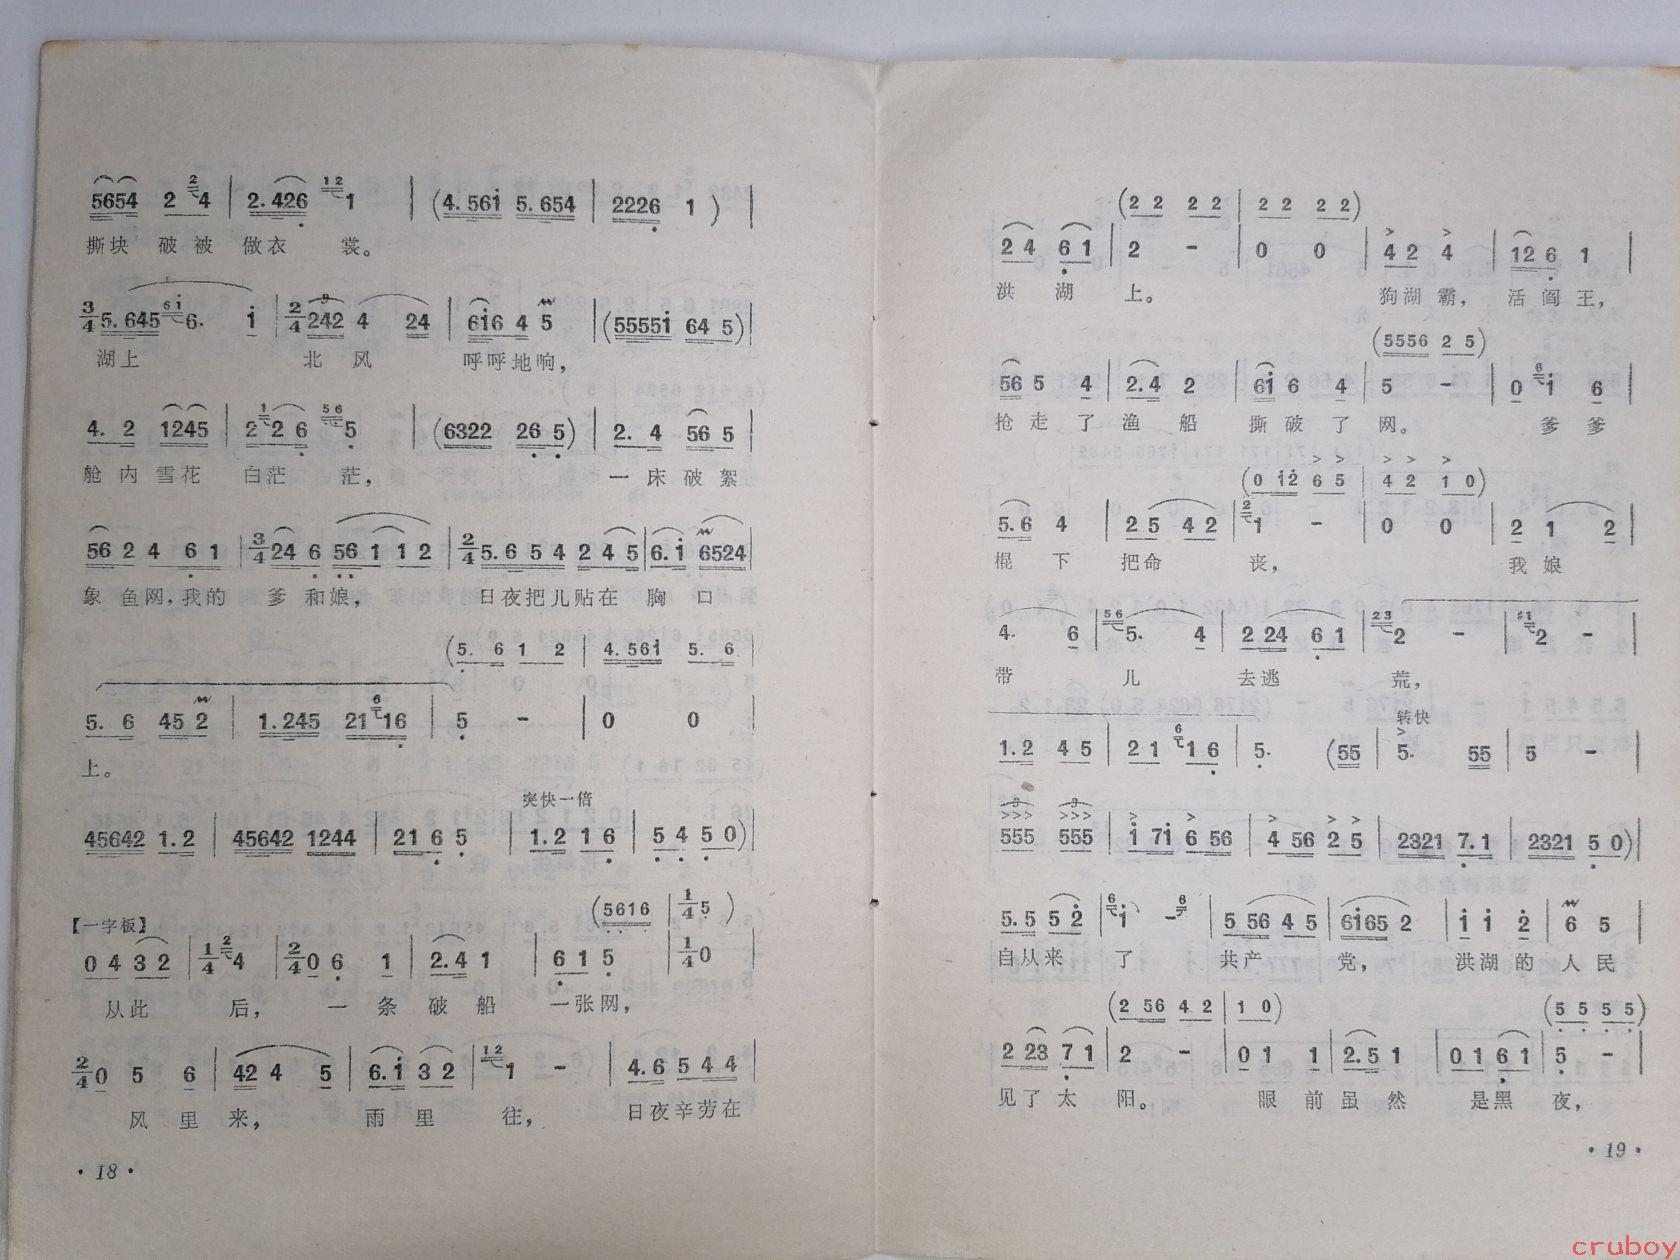 5654 2 2 4 | 2.426 12 1 | (4.561 5.654 | 2226 1 ) |
撕块 破被 做衣 裳。
3/4 5.645 61 6. 1 | 2/4 3 242 4 24 | 616 4 5 | (55551 64 5) |
湖上 北风 呼呼地响，
4. 2 1245 | 2 1 2 6 56 5 | (6322 26 5) | 2. 4 56 5
舱内雪花 白茫 茫， 一床破絮
56 2 4 6 1 | 3/4 24 6 56 1 1 2 | 2/4 5.6 5 4 2 4 5 | 6.1 6524 |
象鱼网，我的 爹和娘， 日夜把儿贴在 胸口
(5. 6 1 2 | 4.561 5. 6 |
5. 6 45 2 | 1.245 21 6 16 | 5 - | 0 0 |
上。
突快一倍
45642 1.2 | 45642 1244 | 21 6 5 | 1.2 16 | 5 4 5 0) |
(5616 | 1/4 5 )
【一字板】
0 4 3 2 | 1/4 2 4 | 2/4 0 6 1 | 2.4 1 | 6 1 5 | 1/4 0 |
从此 后， 一条破船 一张网，
2/4 0 5 6 | 42 4 5 | 6.1 3 2 | 12 1 - | 4.6 5 4 4 |
风里来， 雨里 往， 日夜辛劳在
· 18 ·
(2 2 2 2 | 2 2 2 2)
2 4 6 1 | 2 - | 0 0 | 4 2 4 | 12 6 1 |
洪湖 上。 狗湖霸， 活阎王，
(5556 2 5)
56 5 4 | 2.4 2 | 61 6 4 | 5 - | 0 6 1 6 |
抢走了 渔船 撕破了 网。 爹爹
(0 12 6 5 | 4 2 1 0)
5.6 4 | 2 5 4 2 | 2 1 - | 0 0 | 2 1 2 |
棍下 把命 丧， 我娘
4. 6 | 56 5. 4 | 2 24 6 1 | 23 2 - | #1 2 - |
带 儿 去逃 荒，
转快
1.2 4 5 | 2 1 6 1 6 | 5. (55 | 5. 55 | 5 - |
3 555 3 555 | 1 71 6 56 | 4 56 2 5 | 2321 7.1 | 2321 5 0) |
5.5 5 2 | 6 1 - 6 | 5 56 4 5 | 6165 2 | 1 1 2 | 6 5 |
自从来 了 共产 党， 洪湖的 人民
(2 56 4 2 | 1 0) (5 5 5 5)
2 23 7 1 | 2 - | 0 1 1 | 2.5 1 | 0 1 6 1 | 5 - |
见了太 阳。 眼前虽然 是黑 夜，
· 19 ·
cruboy